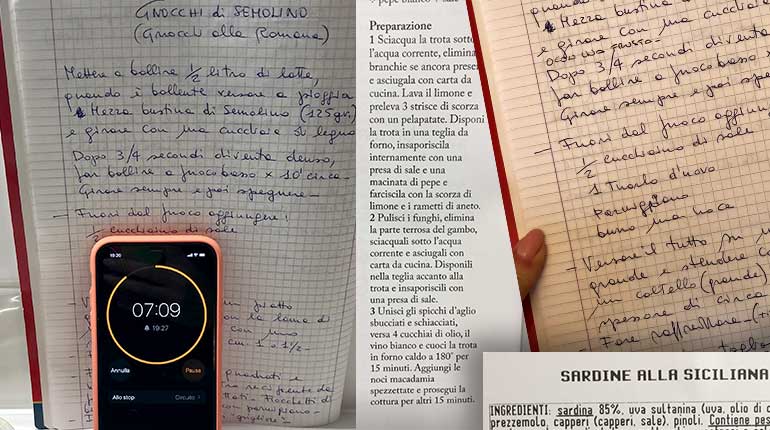 GNOCCHI di SEMOLINO
(Gnocchi alla Romana)
Mettere a bollire 1/2 litro di latte,
quando è bollente versare a pioggia
Mezza bustina di Semolino (125gr.)
e girare con una cucchiaia di legno
Dopo 3/4 secondi diventa denso,
far bollire a fuoco basso x 10' circa -
Girare sempre e poi spegnere -
- Fuori dal fuoco aggiungere:
1/2 cucchiaino di sale
19:20
07:09
19:27
Annulla
Pausa
Allo stop
Circuito
piatto
con la lama di
cm. 1 o 1 1/2
pepe bianco
sale
Preparazione
1 Sciacqua la trota sotto
l'acqua corrente, elimina
branchie se ancora presen
e asciugala con carta da
cucina. Lava il limone e
preleva 3 strisce di scorza
con un pelapatate. Disponi
la trota in una teglia da
forno, insaporiscila
internamente con una
presa di sale e una
macinata di pepe e
farciscila con la scorza di
limone e i rametti di aneto.
2 Pulisci i funghi, elimina
la parte terrosa del gambo,
sciacquali sotto l'acqua
corrente e asciugali con
carta da cucina. Disponili
nella teglia accanto alla
trota e insaporiscili con
una presa di sale.
3 Unisci gli spicchi d'aglio
sbucciati e schiacciati,
versa 4 cucchiai di olio, il
vino bianco e cuoci la trota
in forno caldo a 180° per
15 minuti. Aggiungi le
noci macadamia
spezzettate e prosegui la
cottura per altri 15 minuti.
quando
Mezza bustina
e girare con una cucchiaia
Dopo 3/4 secondi diventa
far bollire a fuoco basso x
Girare sempre e poi spe
- Fuori dal fuoco aggiun
1/2 cucchiaino di sale
1 Tuorlo d'uovo
Parmigiano
burro una noce
- Versare il tutto su un
grande e stendere co
un coltello (grande)
spessore di circa
- Fare raffreddare
SARDINE ALLA SICILIANA
INGREDIENTI: sardina 85%, uva sultanina (uva, olio di c
prezzemolo, capperi (capperi, sale), pinoli. Contiene pes